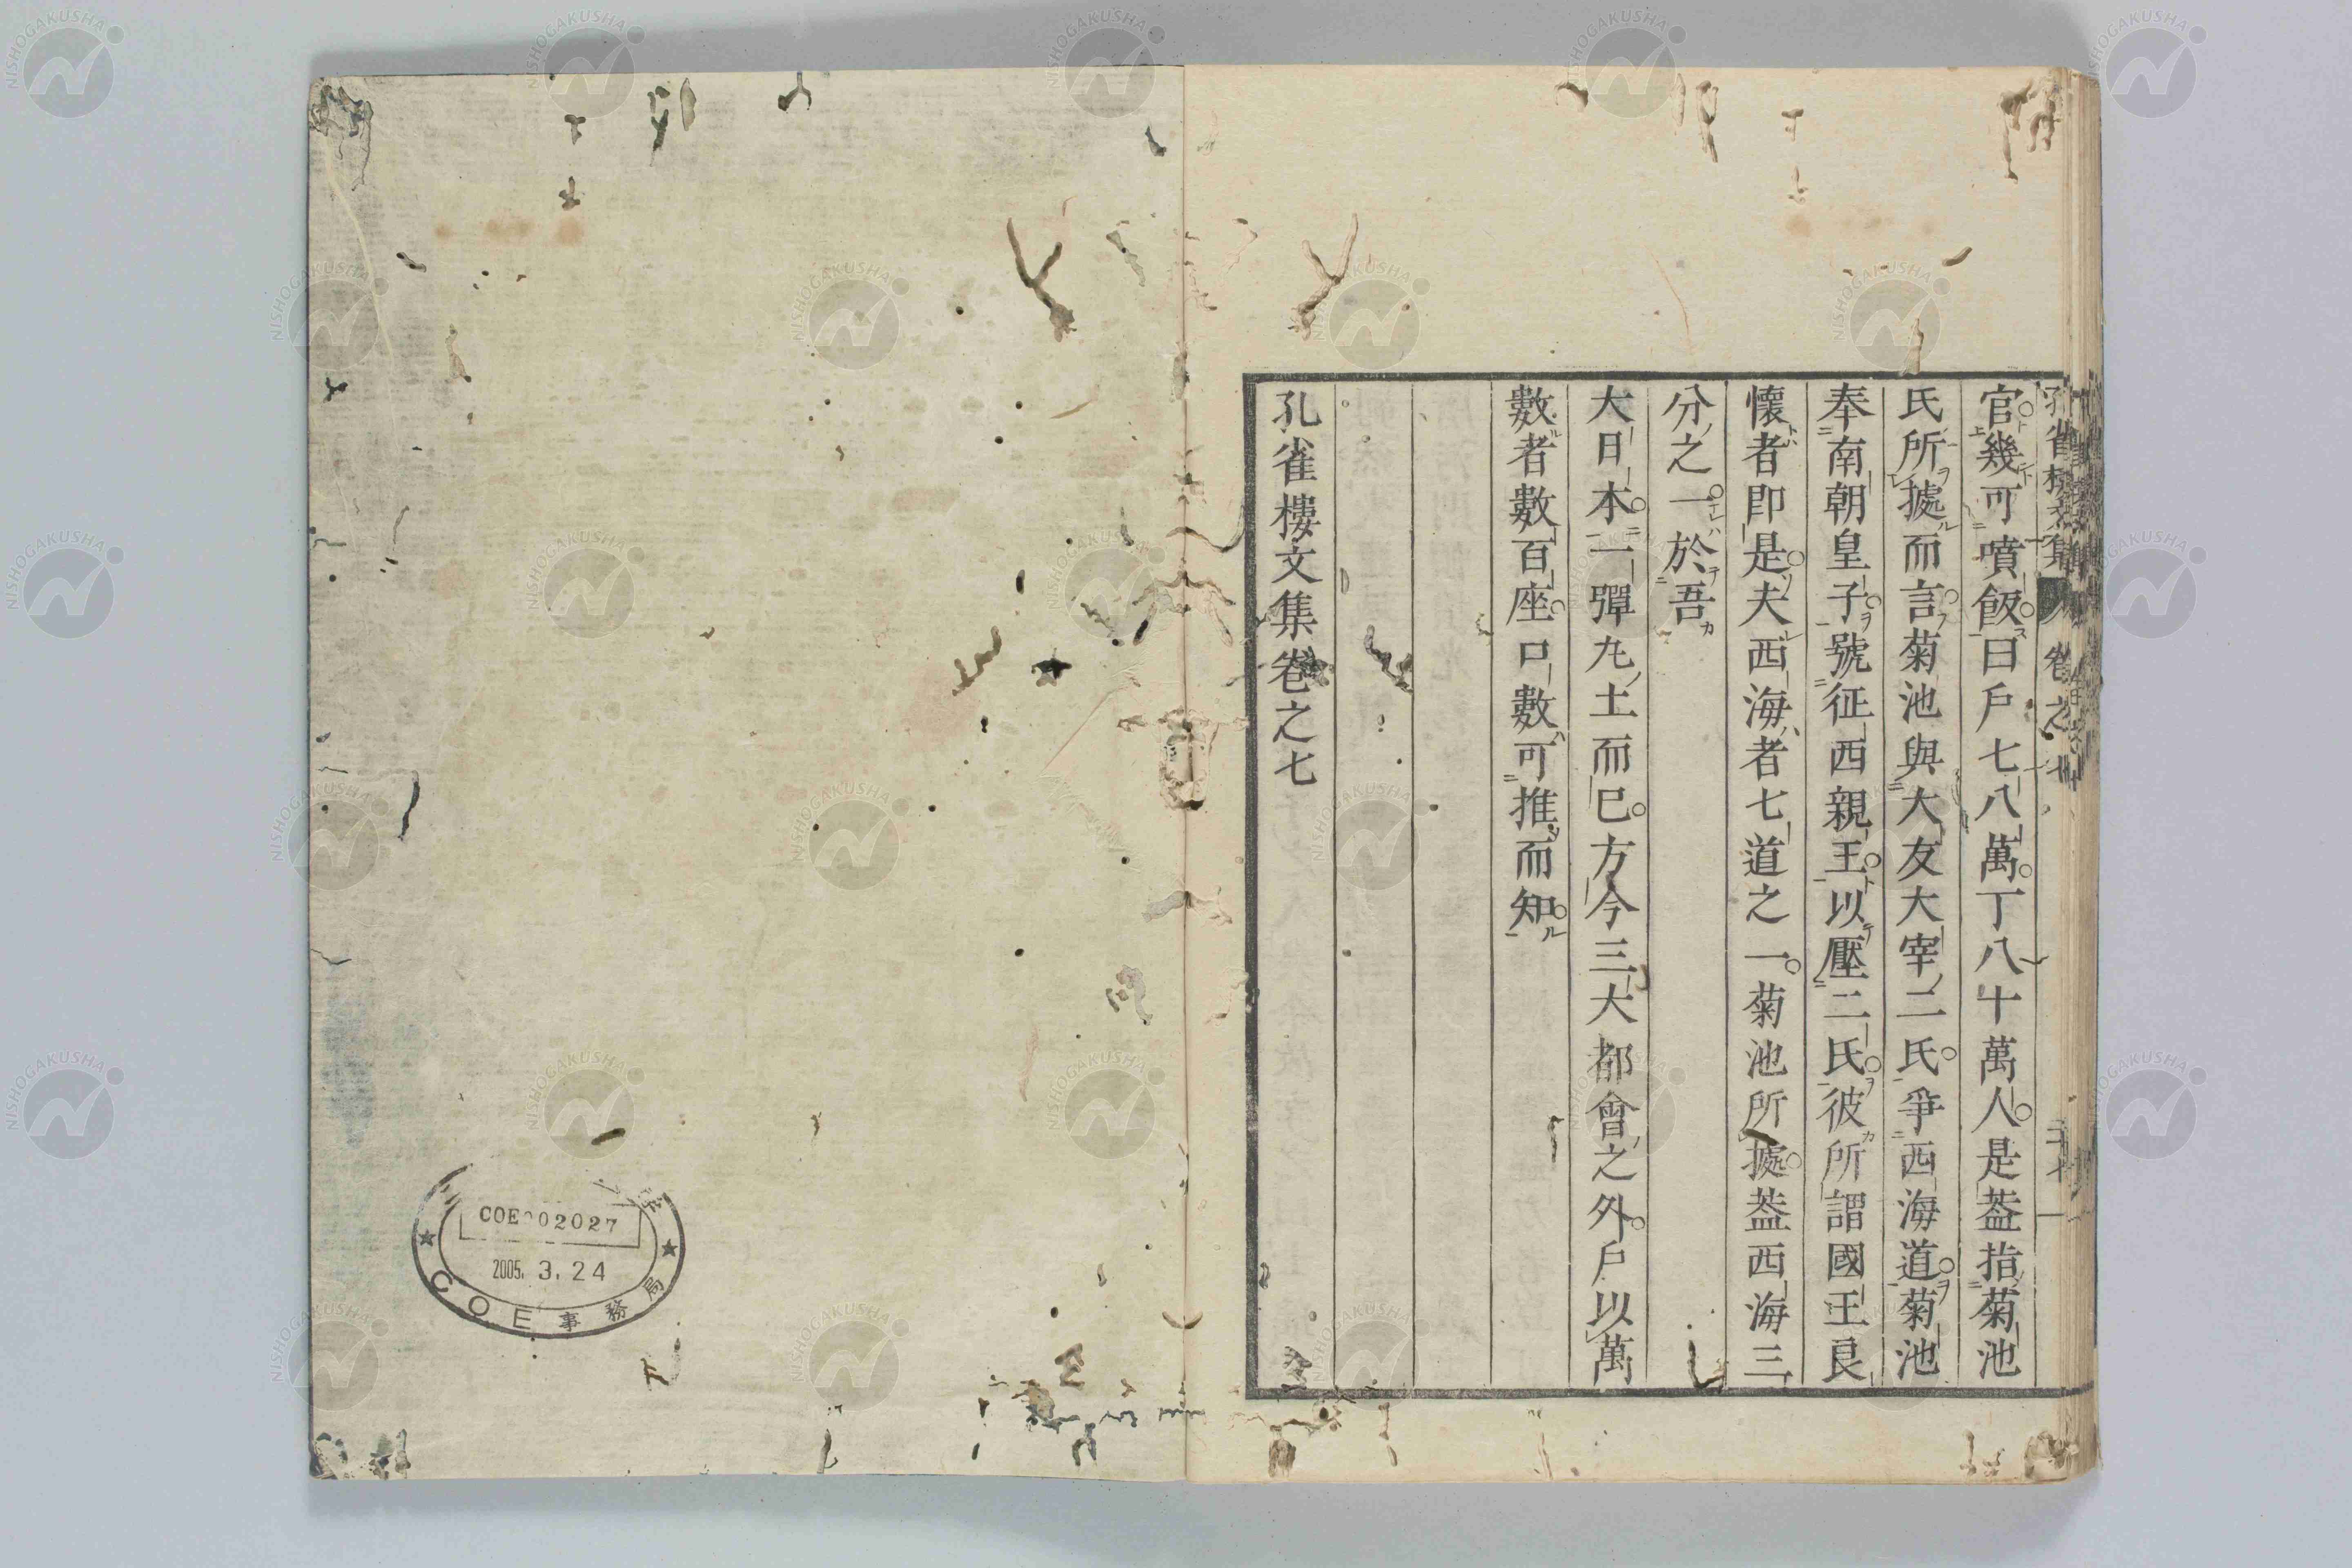 官幾可噴飯曰戶七八萬丁八十萬人是葢指菊池
氏所據而言菊池與大友大宰二氏爭西海道菊池
奉南朝皇子號征西親王以壓二氏彼所謂國王良
懷者即是夫西海者七道之一菊池所據葢西海三
分之一於吾
大日本一彈丸土而已方今三大都會之外戶以萬
數者數百座口數可推而知
孔雀樓文集卷之七
孔雀樓文集
卷之七
COE002027
2005. 3. 24
COE事務局
NISHOGAKUSHA